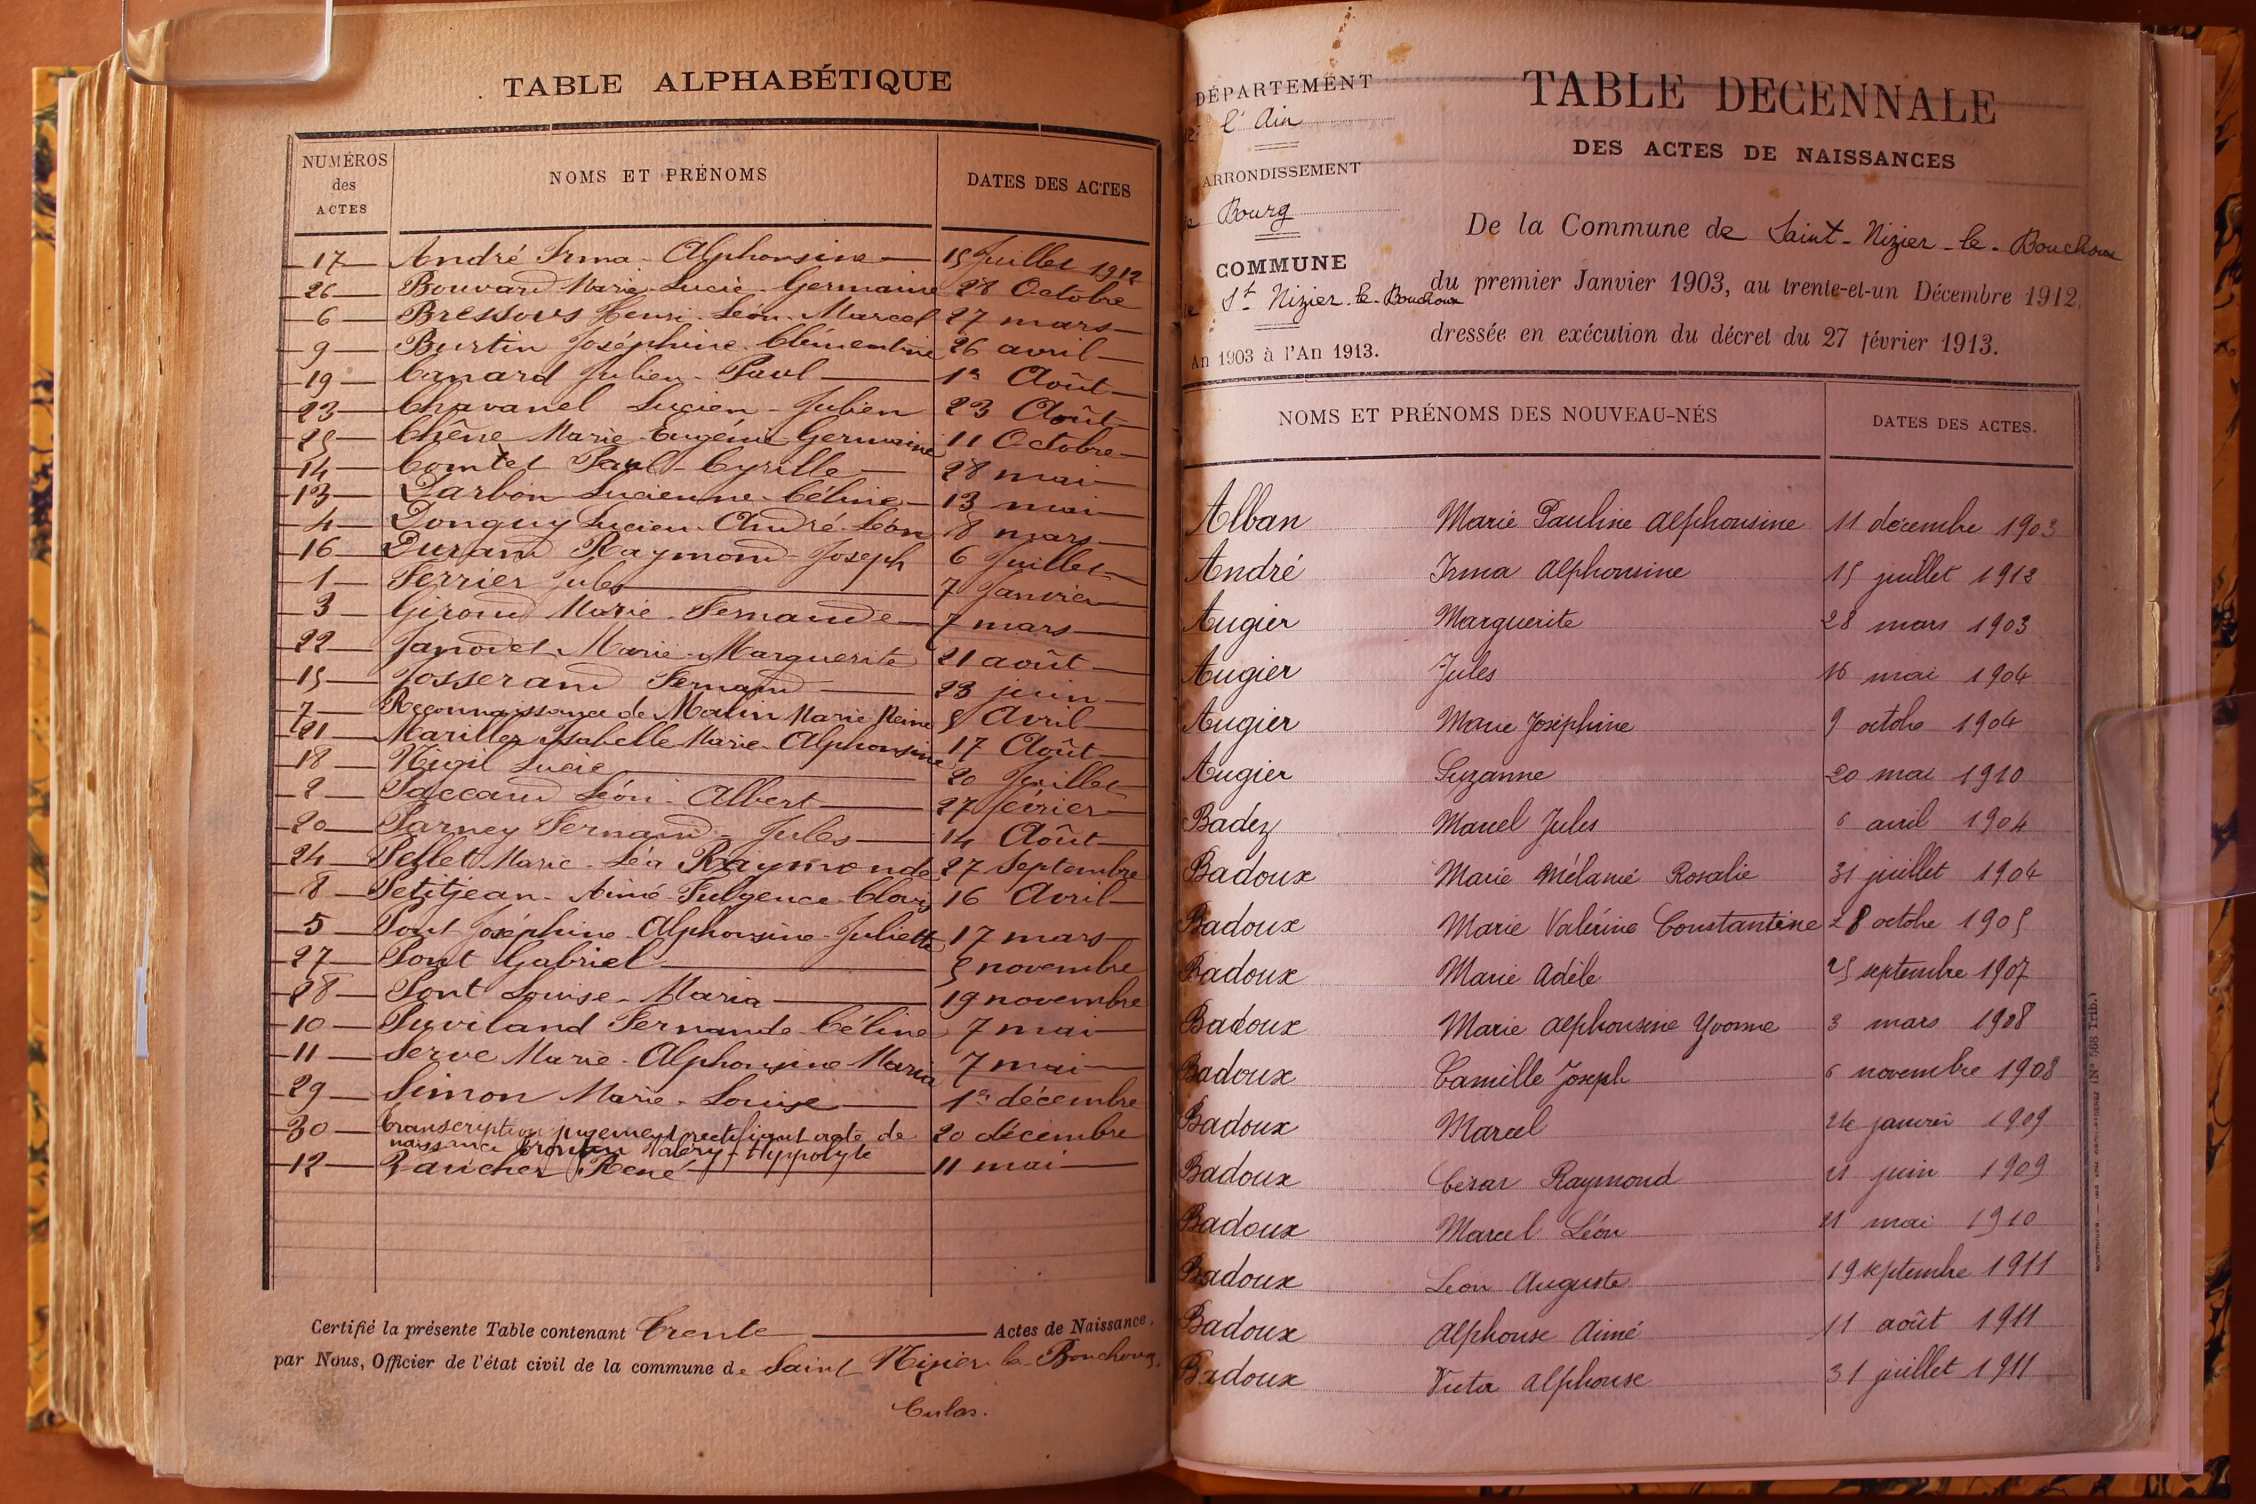 TABLE ALPHABÉTIQUE
NUMÉROS des ACTES NOMS ET PRÉNOMS DATES DES ACTES
17 André Irma Alphonsine 15 Juillet 1912
26 Bouvard Marie Lucie Germaine 28 Octobre
6 Bressous Henri Léon Marcel 27 mars
9 Burtin Joséphine Clémentine 26 avril
19 Canard Julien Paul 1er Août
23 Chavanel Lucien Julien 23 Août
25 Chêne Marie Eugénie Germaine 11 Octobre
14 Comtet Paul Cyrille 28 mai
13 Darbon Lucienne Céline 13 mai
4 Donguy Lucien André Léon 8 mars
16 Durand Raymond Joseph 6 Juillet
1 Ferrier Jules 7 Janvier
3 Giroud Marie Fernande 7 mars
22 Janodet Marie Marguerite 21 août
15 Josserand Fernand 23 juin
7 Reconnaissance de Molin Marie Reine 5 Avril
21 Mariller Isabelle Marie Alphonsine 17 Août
18 Nigil Lucie 20 Juillet
2 Paccaud Léon Albert 27 février
20 Parney Fernand Jules 14 Août
24 Pellet Marie Léa Raymonde 27 Septembre
8 Petitjean Aimé Fulgence Clovis 16 Avril
5 Pont Joséphine Alphonsine Juliette 17 mars
27 Pont Gabriel 5 novembre
28 Pont Louise Maria 19 novembre
10 Puviland Fernande Céline 7 mai
11 Serve Marie Alphonsine Maria 7 mai
29 Simon Marie Louise 1er décembre
30 transcription jugement rectifiant acte de 20 décembre
naissance Valéry Hyppolyte
12 Vaucher René 11 mai
Certifié la présente Table contenant trente Actes de Naissance,
par Nous, Officier de l'état civil de la commune de Saint Nizier le Bouchoux.
Culas.
DÉPARTEMENT
l'Ain
ARRONDISSEMENT
Bourg
COMMUNE
St Nizier-le-Bouchoux
An 1903 à l'An 1913.
TABLE DECENNALE
DES ACTES DE NAISSANCES
De la Commune de Saint-Nizier-le-Bouchoux
du premier Janvier 1903, au trente-et-un Décembre 1912,
dressée en exécution du décret du 27 février 1913.
NOMS ET PRÉNOMS DES NOUVEAU-NÉS DATES DES ACTES.
Alban Marie Pauline Alphonsine 11 décembre 1903
André Irma Alphonsine 15 juillet 1912
Augier Marguerite 28 mars 1903
Augier Jules 16 mai 1904
Augier Marie Joséphine 9 octobre 1904
Augier Suzanne 20 mai 1910
Badez Marcel Jules 6 avril 1904
Badoux Marie Mélanie Rosalie 31 juillet 1904
Badoux Marie Valérine Constantine 28 octobre 1905
Badoux Marie Adèle 25 septembre 1907
Badoux Marie Alphonsine Yvonne 3 mars 1908
Badoux Camille Joseph 6 novembre 1908
Badoux Marcel 24 janvier 1909
Badoux César Raymond 21 juin 1909
Badoux Marcel Léon 21 mai 1910
Badoux Léon Auguste 19 septembre 1911
Badoux Alphonse Aimé 11 août 1911
Badoux Victor Alphonse 31 juillet 1911